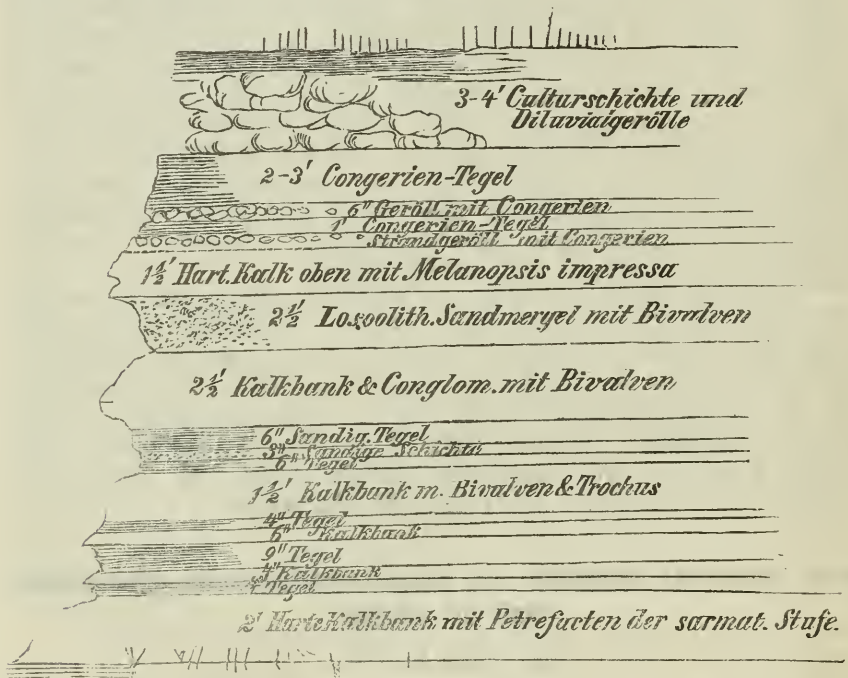 3-4' Culturschichte und
Diluvialgerölle
2-3' Congerien-Tegel
6" Geröll mit Congerien
1' Congerien-Tegel
Strandgeröll mit Congerien
1½' Hart. Kalk oben mit Melanopsis impressa
2½' Los. oolith. Sandmergel mit Bivalven
2½' Kalkbank & Conglom. mit Bivalven
6" Sandig. Tegel
3" Sandige Schichte
6" Tegel
1½' Kalkbank m. Bivalven & Trochus
4" Tegel
6" Kalkbank
9" Tegel
4" Kalkbank
Tegel
2' Harte Kalkbank mit Petrefacten der sarmat. Stufe.